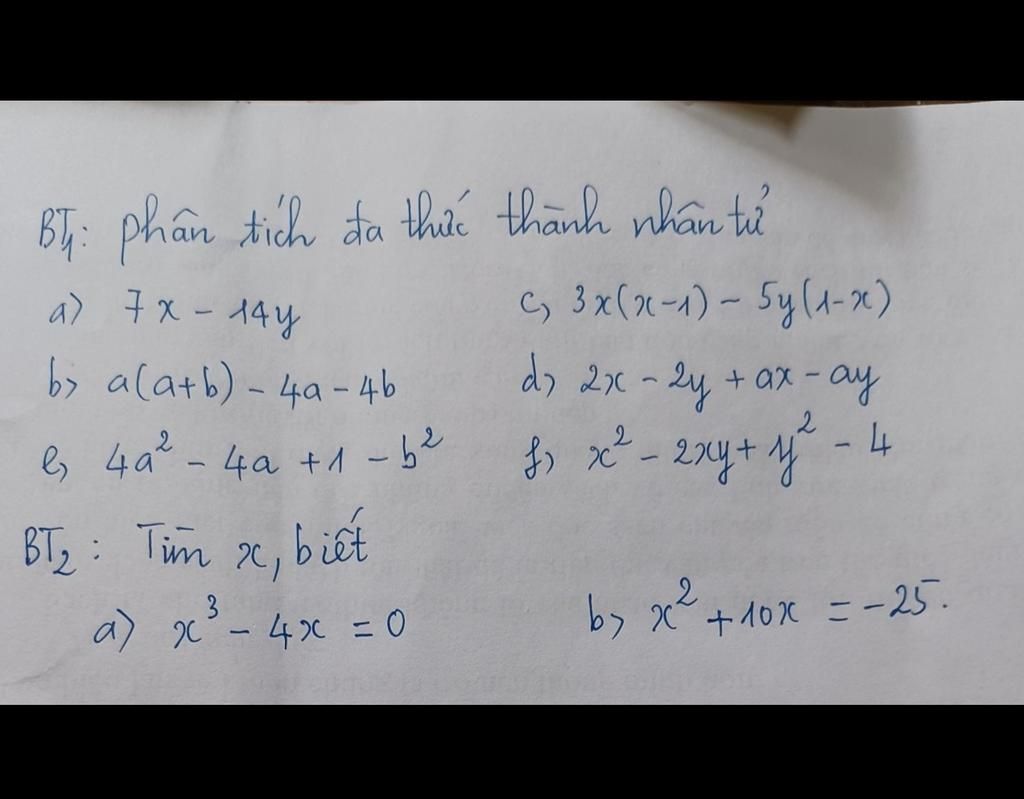 BT1: phân tích đa thức thành nhân tử
a) 7x - 14y c, 3x(x-1) - 5y(1-x)
b> a(a+b) - 4a - 4b d> 2x - 2y + ax - ay
e, 4a² - 4a + 1 - b² f, x² - 2xy + y² - 4
BT2: Tìm x, biết
a) x³ - 4x = 0 b> x² + 10x = -25.